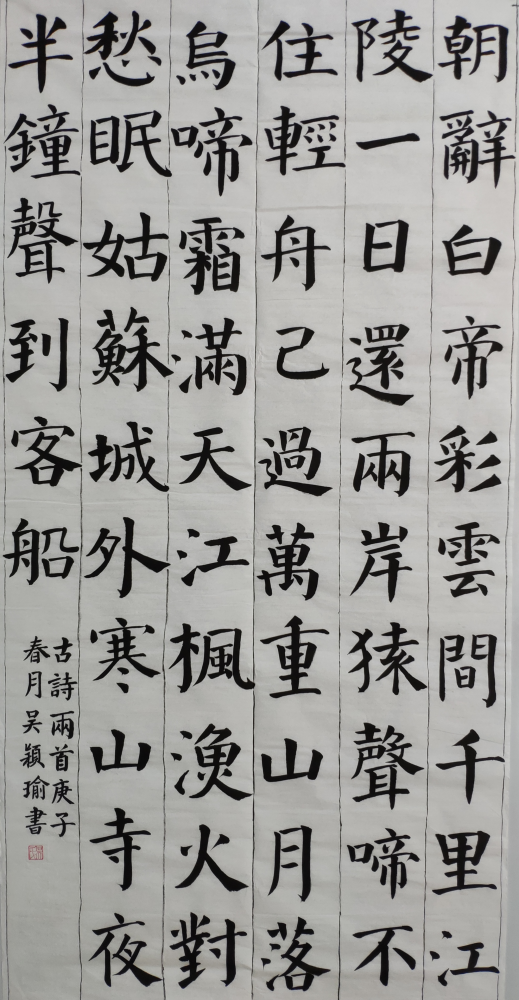 朝辭白帝彩雲間千里江
陵一日還兩岸猿聲啼不
住輕舟己過萬重山月落
烏啼霜滿天江楓漁火對
愁眠姑蘇城外寒山寺夜
半鐘聲到客船
古詩兩首庚子
春月吴穎瑜書